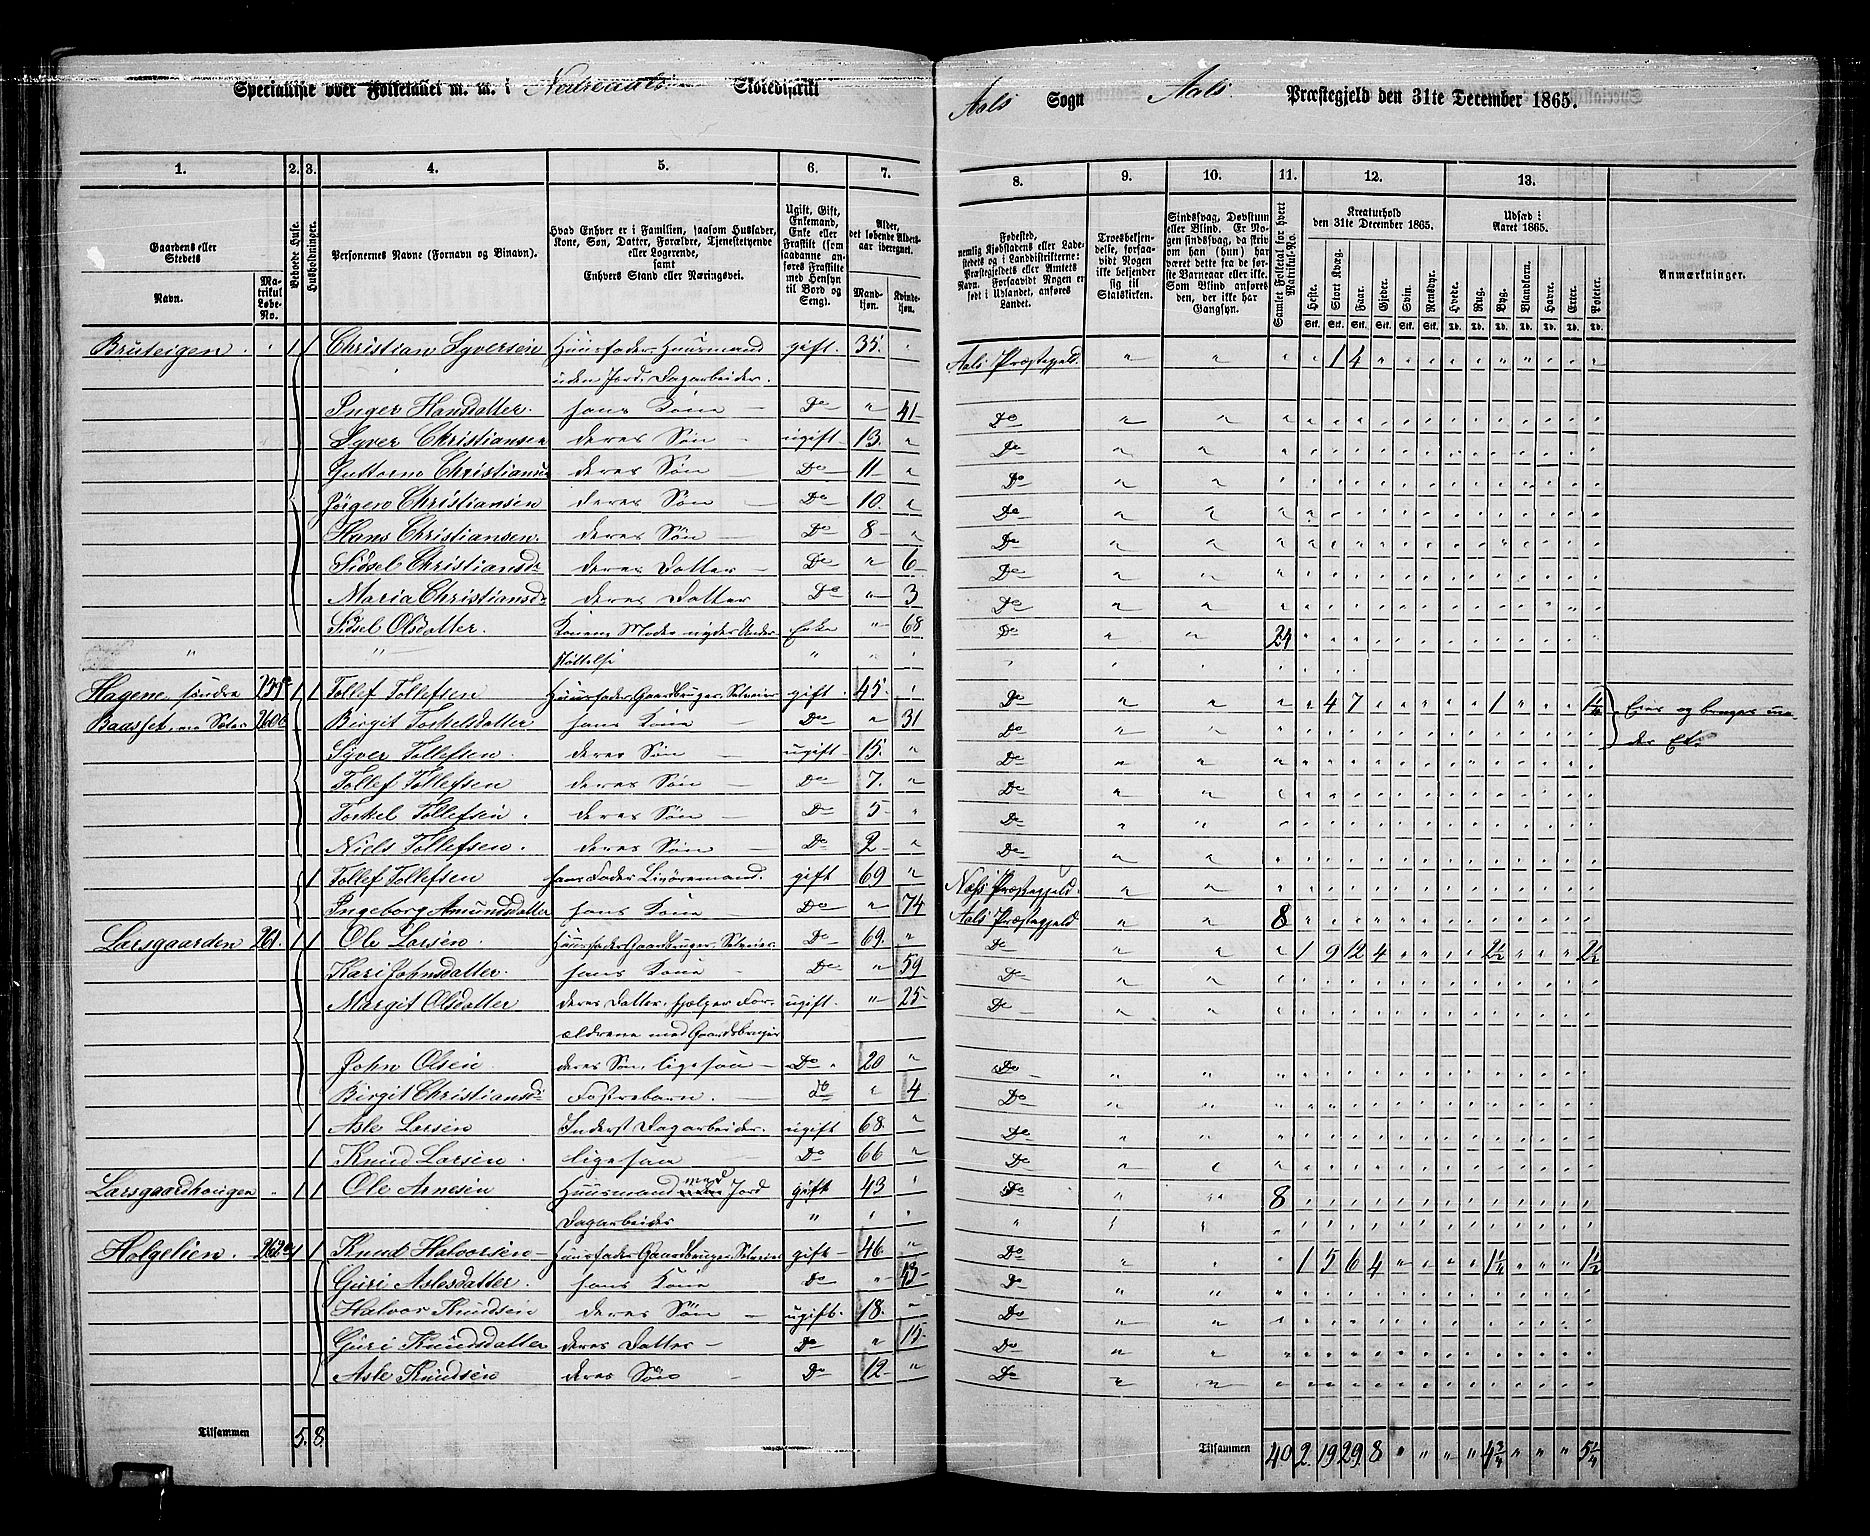 Specialliste over Folketallet m. m. i Nedreaals Skoledistrikt
Aals Sogn Aals Præstegjeld den 31te December 1865.
1. 2. 3. 4. 5. 6. 7. 8. 9. 10. 11. 12. 13.
Gaardens eller Stedets Navn. Matrikul Løbe-No. Beboede Huse. Husholdninger. Personernes Navne (Fornavn og Binavn). Hvad Enhver er i Familien, saasom Husfader, Kone, Søn, Datter, Forældre, Tjenestetyende eller Logerende, samt Enhvers Stand eller Næringsvei. Ugift, Gift, Enkemand, Enke eller Fraskilt (som saadanne anføres Fraskilte med Hensyn til Bord og Seng). Alder, det løbende Aldersaar iberegnet. Mandkjøn. Kvindekjøn.
Fødested, nemlig Kjøbstadens eller Ladestedets og i Landdistrikterne: Præstegjeldets eller Amtets Navn. Forsaavidt Nogen er født i Udlandet, anføres Landet. Troesbekjendelse, forsaavidt Nogen ikke bekjender sig til Statskirken. Sindssvag, Døvstum eller Blind. Er Nogen sindssvag, da skriv om han (hun) har været dette fra de første Barneaar eller ikke. Som Blind opføres den, der ikke har Gangsyn. Samlet Folketal for hvert Matrikul-No. Kreaturhold den 31te December 1865. Heste. Stort Kvæg. Faar. Gjeder. Svin. Rensdyr. Udsæd i Aaret 1865. Hvede. Rug. Byg. Blandkorn. Havre. Erter. Poteter. Anmærkninger.
Stk. Stk. Stk. Stk. Stk. Stk. Td. Td. Td. Td. Td. Td. Td.
Bruteigen. " 1 1 Christian Syversen Huusfader, Huusmand gift. 35. " Aals Præstegjeld. " " " " 1 4
uden Jord, Dagarbeider.
Inger Hansdatter. hans Kone Do " 41 Do
Syver Christiansen deres Søn ugift. 13. " Do
Guttorm Christiansen deres Søn Do 11 " Do
Jørgen Christiansen deres Søn Do 10. " Do
Hans Christiansen. deres Søn Do 8 " Do
Sidsel Christiansd. deres Datter Do " 6 Do
Maria Christiansd. deres Datter Do " 3 Do
Sidsel Olsdatter. Konens Moder nyder Under- Enke " 68 Do " " 24
" " støttelse " " "
Hagene, søndre 259a 1 1 Tollef Tollefsen Huusfader, Gaardbruger, Selveier gift. 45. " Do " " " " 4 7 " " " " " 1 " " " 1¼ Eies og bruges un-
Baasset, en Sæter 260c Birgit Torkelsdatter hans Kone Do " 31 Do der Et.
Syver Tollefsen. deres Søn ugift. 15. " Do
Tollef Tollefsen deres Søn Do 7. " Do
Torkel Tollefsen. deres Søn Do 5 " Do
Niels Tollefsen. deres Søn Do 2 " Do
1 Tollef Tollefsen hans Fader Livøremand. gift 69 " Næs Præstegjeld.
Ingeborg Amundsdatter hans Kone Do " 74 Aals Præstegjeld " " 8
Larsgaarden 261. 1 1 Ole Larsen. Huusfader Gaardbruger, Selveier Do 69. " Do " " " 1 9 12 4 " " " " 2½ " " " 2½
Kari Johnsdatter. hans Kone Do " 59 Do
Margit Olsdatter deres Datter, hjelper For- ugift. " 25 Do
ældrene med Gaardsbruget
John Olsen deres Søn, ligesaa Do " 20 " Do
Birgit Christiansd. Fosterbarn. Do " 4 Do
1 Asle Larsen Inderst Dagarbeider. ugift 68. " Do
1 Knud Larsen. ligesaa Do 66 " Do
Larsgaardhougen " 1 1 Ole Arnesen Huusmand med Jord gift 43 " Do " " 8
Dagarbeider " " "
Holgelien. 262a 1 1 Knud Halvorsen Huusfader Gaardbruger, Selveier gift 46. " Do " " " 1 5 6 4 " " " " 1¼ " " " 1½
Guri Aslesdatter. hans Kone Do " 43 Do
Halvor Knudsen deres Søn ugift. 18. " Do
Guri Knudsdatter deres Datter Do " 15. Do
Asle Knudsen deres Søn Do 12 " Do
Tilsammen 5. 8. Tilsammen 40 2. 19 29. 8 " " " " 4¾ " " " 5¼